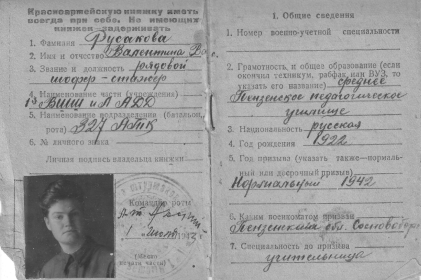 Красноармейскую книжку иметь
всегда при себе. Не имеющих
книжки — задерживать
1. Фамилия Русакова
2. Имя и отчество Валентина
3. Звание и должность рядовой
шофер-
4. Наименование части (учреждения)
5. Наименование подразделения (батальон,
рота) 327
6. № личного знака
Личная подпись владельца книжки
Командир роты
1 1942 г.
(Место
печати части)
I. Общие сведения
1. Номер военно-учетной специальности
2. Грамотность, и общее образование (если
окончил техникум, рабфак или ВУЗ, то
указать его название) среднее
Пензенское педагогическое
училище
3. Национальность русская
4. Год рождения 1922
5. Год призыва (указать также—нормаль-
ный или досрочный призыв)
Нормальный 1942
6. Каким военкоматом призван
Пензенская обл.
7. Специальность до призыва
учительница